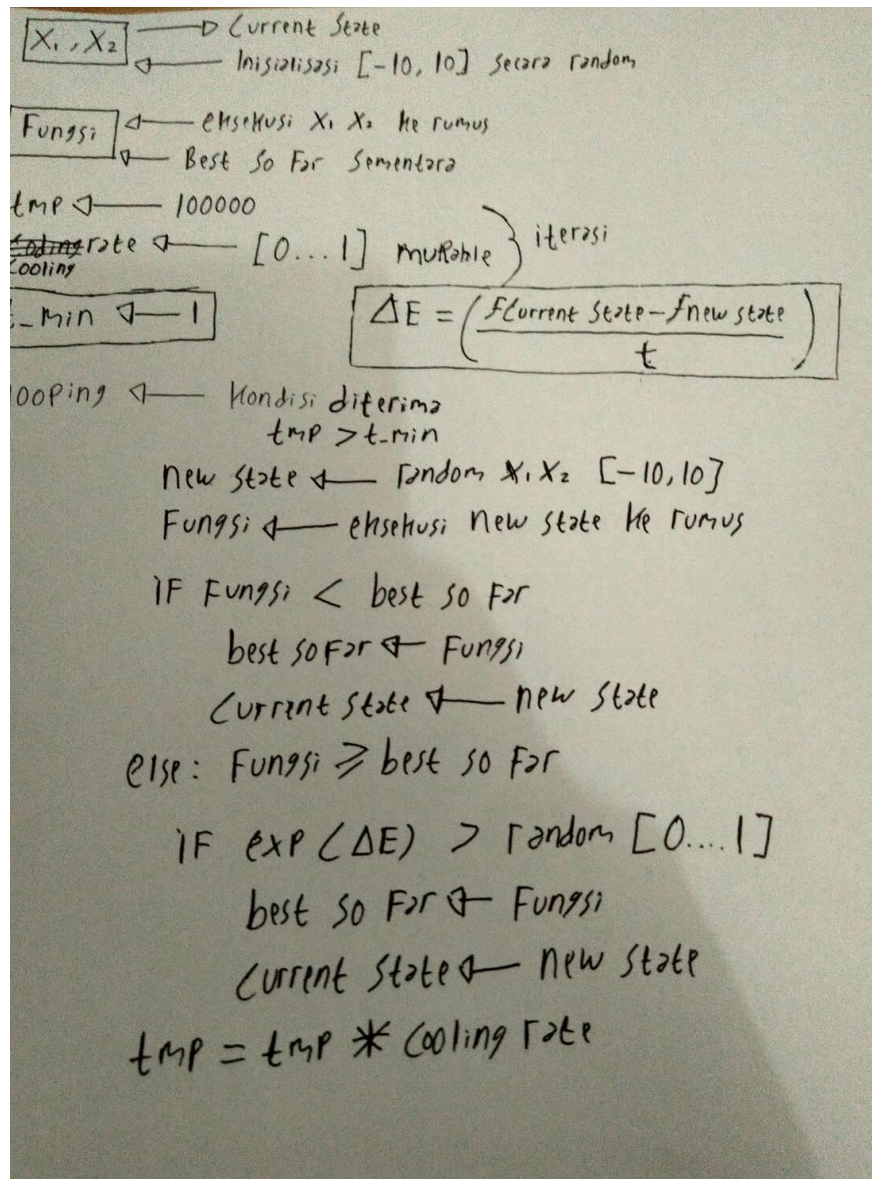 X₁, X₂ → Current State
← Inisialisasi [-10, 10] secara random
Fungsi ← eksekusi X₁ X₂ ke rumus
← Best So Far Sementara
tmp ← 100000
rate ← [0...1] } iterasi
Cooling
_min ← 1
ΔE = (fCurrent State - fnew state / t)
ooping ← Kondisi diterima
tmp > t_min
new state ← random X₁ X₂ [-10, 10]
Fungsi ← eksekusi new state ke rumus
if Fungsi < best so far
best so far ← Fungsi
Current State ← new state
else: Fungsi ≥ best so far
if exp (ΔE) > random [0....1]
best so far ← Fungsi
Current State ← new state
tmp = tmp * Cooling rate